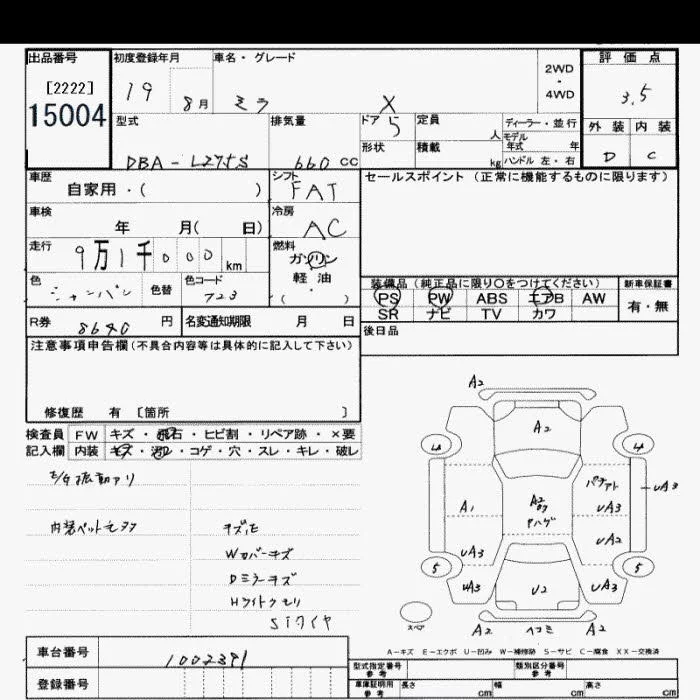 出品番号 初度登録年月 車名・グレード 2WD・4WD 評価点
[2222] 19 8月 ミラ X 3.5
15004
型式 排気量 ドア 5 定員 人 ディーラー・並行 外装 内装
DBA-L275S 660 CC 形状 積載 kg モデル年式 年 D C
ハンドル 左・右
車歴 シフト セールスポイント(正常に機能するものに限ります)
自家用・( ) FAT
車検 冷房
年 月( 日) AC
走行 9万1千000 km 燃料
ガソリン
軽油
・
( )
色 シャンパン 色替 色コード T23 装備品(純正品に限り〇をつけてください) 新車保証書
PS PW ABS エアB AW 有・無
SR ナビ TV カワ
R券 8640 円 名変通知期限 月 日 後日品
注意事項申告欄(不具合内容等は具体的に記入して下さい)
修復歴 有 [箇所 ]
検査員 FW キズ・飛石・ヒビ割・リペア跡・×要
記入欄 内装 キズ・汚レ・コゲ・穴・スレ・キレ・破レ
E/G振動アリ
内装ペット毛
キズ
Wカバーキズ
Dミラーキズ
Hライトクモリ
A2
A2
4 4
A1 A2 uA3 uA3
uA3 uA2
5 5
uA3 U2 uA3
スペア A2 ヘコミ A2
A-キズ E-エクボ U-凹み W-補修跡 S-サビ C-腐食 XX-交換済
車台番号 1002391
登録番号
型式指定番号 参考 類別区分番号 参考
車庫証明用 参考 長さ cm 幅 cm 高さ cm